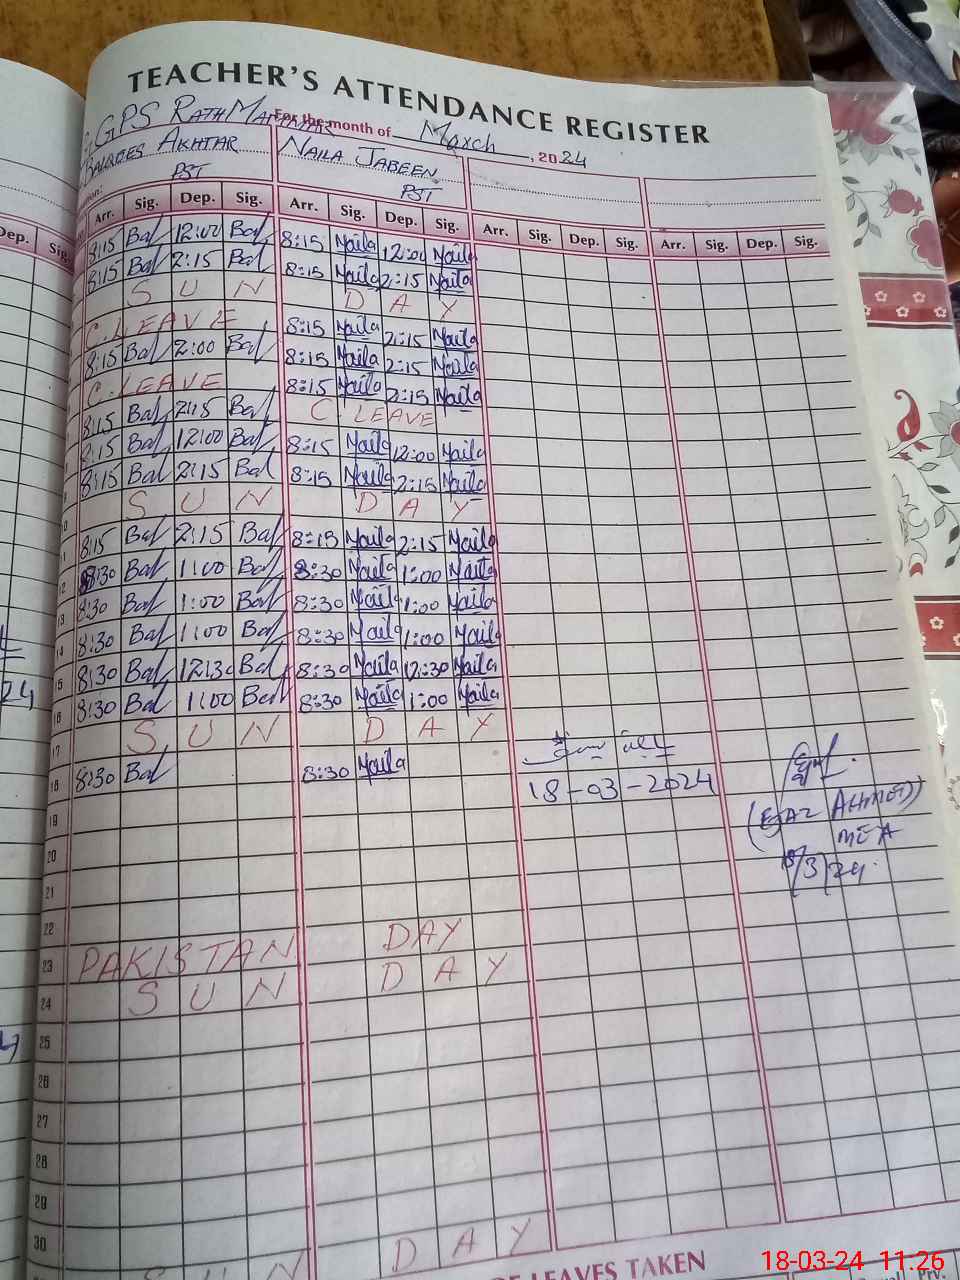 TEACHER'S ATTENDANCE REGISTER
GPS RATH
For the month of March, 2024
AKHTAR NAILA JABEEN
PST PST
Dep. Sig. Arr. Sig. Dep. Sig. Arr. Sig. Dep. Sig. Arr. Sig. Dep. Sig. Arr. Sig. Dep. Sig.
8:15 Bal 12:00 Bal 8:15 Naila 12:00 Naila
8:15 Bal 2:15 Bal 8:15 Naila 2:15 Naila
S U N D A Y
C. LEAVE 8:15 Naila 2:15 Naila
8:15 Bal 2:00 Bal 8:15 Naila 2:15 Naila
C. LEAVE 8:15 Naila 2:15 Naila
8:15 Bal 2:15 Bal C LEAVE
8:15 Bal 12:00 Bal 8:15 Naila 12:00 Naila
8:15 Bal 2:15 Bal 8:15 Naila 2:15 Naila
10 S U N D A Y
11 8:15 Bal 2:15 Bal 8:15 Naila 2:15 Naila
12 8:30 Bal 1:00 Bal 8:30 Naila 1:00 Naila
13 8:30 Bal 1:00 Bal 8:30 Naila 1:00 Naila
14 8:30 Bal 1:00 Bal 8:30 Naila 1:00 Naila
15 8:30 Bal 12:30 Bal 8:30 Naila 12:30 Naila
16 8:30 Bal 1:00 Bal 8:30 Naila 1:00 Naila
17 S U N D A Y
18 8:30 Bal 8:30 Naila 18-03-2024
19 (EJAZ AHMED)
20 MEA
21 18/3/24.
22
23 PAKISTAN DAY
24 S U N D A Y
25
26
27
28
29
30
D A Y
LEAVES TAKEN
18-03-24 11:26